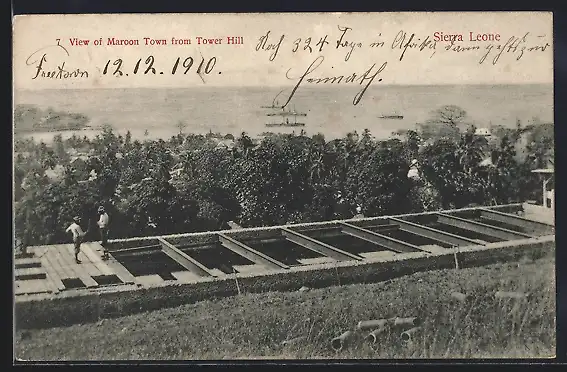 7 View of Maroon Town from Tower Hill
Sierra Leone
Freetown 12.12.1910.
Noch 324 Tage in Afrika, dann geht's zur
Heimath.